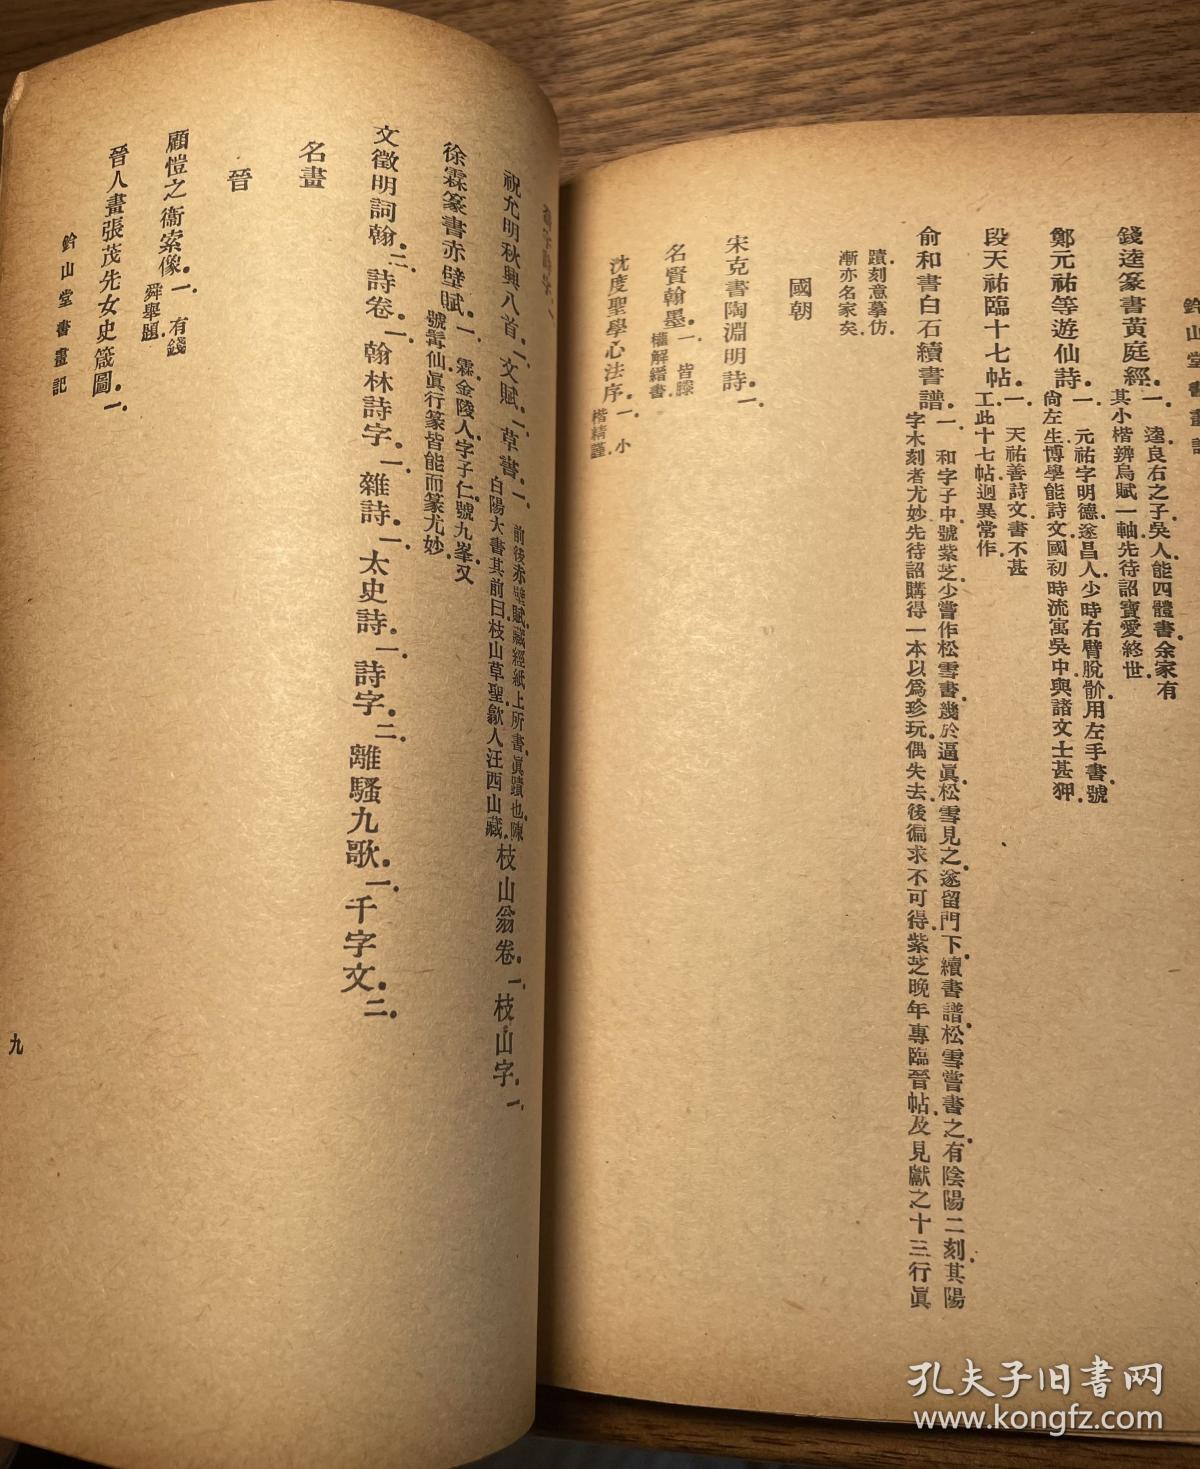 鈐山堂書畫記
錢逵篆書黃庭經一逵良右之子吳人能四體書余家有
其小楷辨烏賦一軸先待詔寶愛終世
鄭元祐等遊仙詩一元祐字明德遂昌人少時右臂脫骱用左手書號
尙左生博學能詩文國初時流寓吳中與諸文士甚狎
段天祐臨十七帖一天祐善詩文書不甚
工此十七帖迥異常作
俞和書白石續書譜一和字子中號紫芝少嘗作松雪書幾於逼眞松雪見之遂留門下續書譜松雪嘗書之有陰陽二刻其陽
字木刻者尤妙先待詔購得一本以爲珍玩偶失去後徧求不可得紫芝晚年專臨晉帖及見獻之十三行眞
蹟刻意摹仿
漸亦名家矣
國朝
宋克書陶淵明詩一
名賢翰墨一皆滕
權解縉書
沈度聖學心法序一小
楷精謹
祝允明秋興八首一文賦一草書一前後赤壁賦藏經紙上所書眞蹟也陳
白陽大書其前曰枝山草聖歙人汪西山藏
枝山翁卷一枝山字一
徐霖篆書赤壁賦一霖金陵人字子仁號九峯又
號髯仙眞行篆皆能而篆尤妙
文徵明詞翰二詩卷一翰林詩字一雜詩一太史詩一詩字二離騷九歌一千字文二
名畫
晉
顧愷之衞索像一有錢
舜舉題
晉人畫張茂先女史箴圖一
鈐山堂書畫記
九
孔夫子旧书网
www.kongfz.com